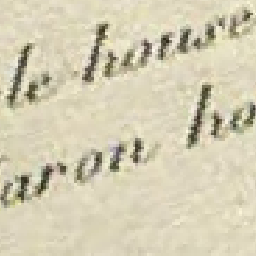 le house
aron ho